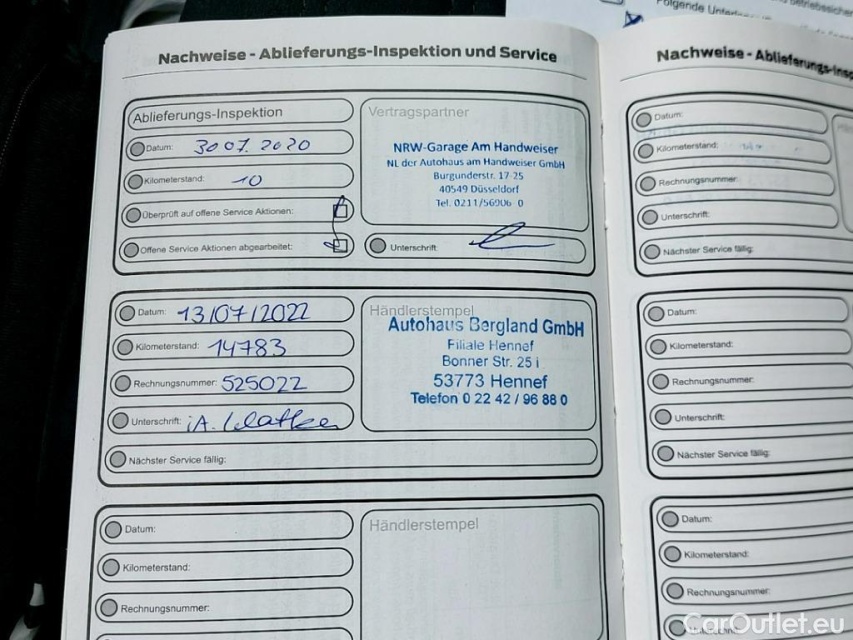 Folgende
Nachweise - Ablieferungs-Inspektion und Service
Ablieferungs-Inspektion
Datum: 30 07. 2020
Kilometerstand: 10
Überprüft auf offene Service Aktionen:
Offene Service Aktionen abgearbeitet:
Vertragspartner
NRW-Garage Am Handweiser
NL der Autohaus am Handweiser GmbH
Burgunderstr. 17-25
40549 Düsseldorf
Tel. 0211/56906-0
Unterschrift:
Datum: 13/07/2022
Kilometerstand: 14783
Rechnungsnummer: 525022
Unterschrift: i.A.
Nächster Service fällig:
Händlerstempel
Autohaus Bergland GmbH
Filiale Hennef
Bonner Str. 25
53773 Hennef
Telefon 0 22 42 / 96 88 0
Datum:
Kilometerstand:
Rechnungsnummer:
Händlerstempel
Nachweise - Ablieferungs-Insp
Datum:
Kilometerstand:
Rechnungsnummer:
Unterschrift:
Nächster Service fällig:
Datum:
Kilometerstand:
Rechnungsnummer:
Unterschrift:
Nächster Service fällig:
Datum:
Kilometerstand:
Rechnungsnummer:
CarOutlet.eu